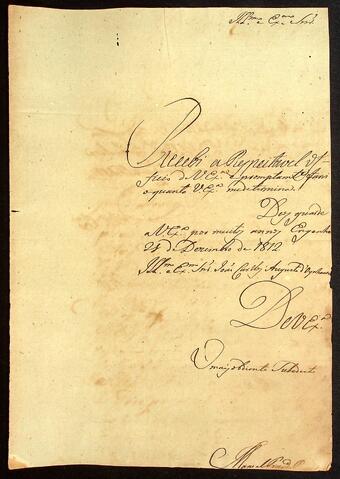 Illmo. e Exmo. Snr.
Recebi a Respeitavel Of-
ficio de V Exa. e promptam.te
o quanto V Exa. me determina.
Deos guarde
a V Exa. por muitos annos Engenho
24 de Dezembro de 1812
Illmo. e Exmo. Snr. José Carlos Augusto d'Oyenhausen
De V Exa.
O mais obediente Subdito
Manoel